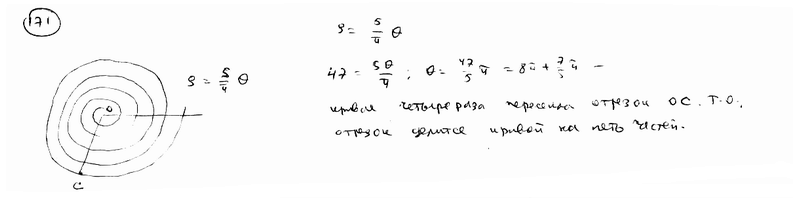 171
ρ = 5/4 θ
47 = 5θ/4 ; θ = 47/5 π = 8π + 7/5 π –
кривая четыре раза пересекла отрезок ОС. Т.О.,
отрезок делится кривой на пять частей.
ρ = 5/4 θ
О
С